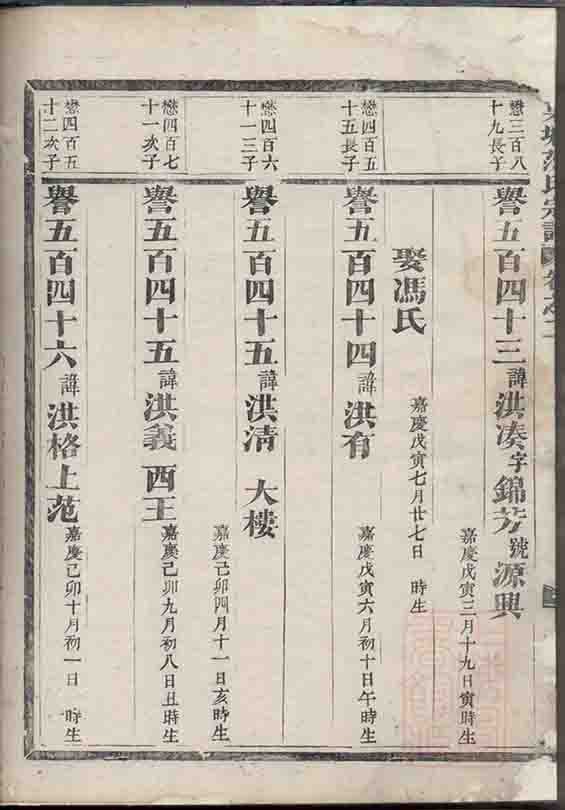 范氏宗譜 卷之二
懋三百八
十九長子
譽五百四十三諱洪湊字錦芳號源興
嘉慶戊寅三月十九日寅時生
娶馮氏
嘉慶戊寅七月廿七日 時生
懋四百五
十五長子
譽五百四十四諱洪有
嘉慶戊寅六月初十日午時生
懋四百六
十一三子
譽五百四十五諱洪清 大樓
嘉慶己卯四月十一日亥時生
懋四百七
十一次子
譽五百四十五諱洪義 西王
嘉慶己卯九月初八日丑時生
懋四百五
十二次子
譽五百四十六諱洪格上范
嘉慶己卯十月初一日 時生